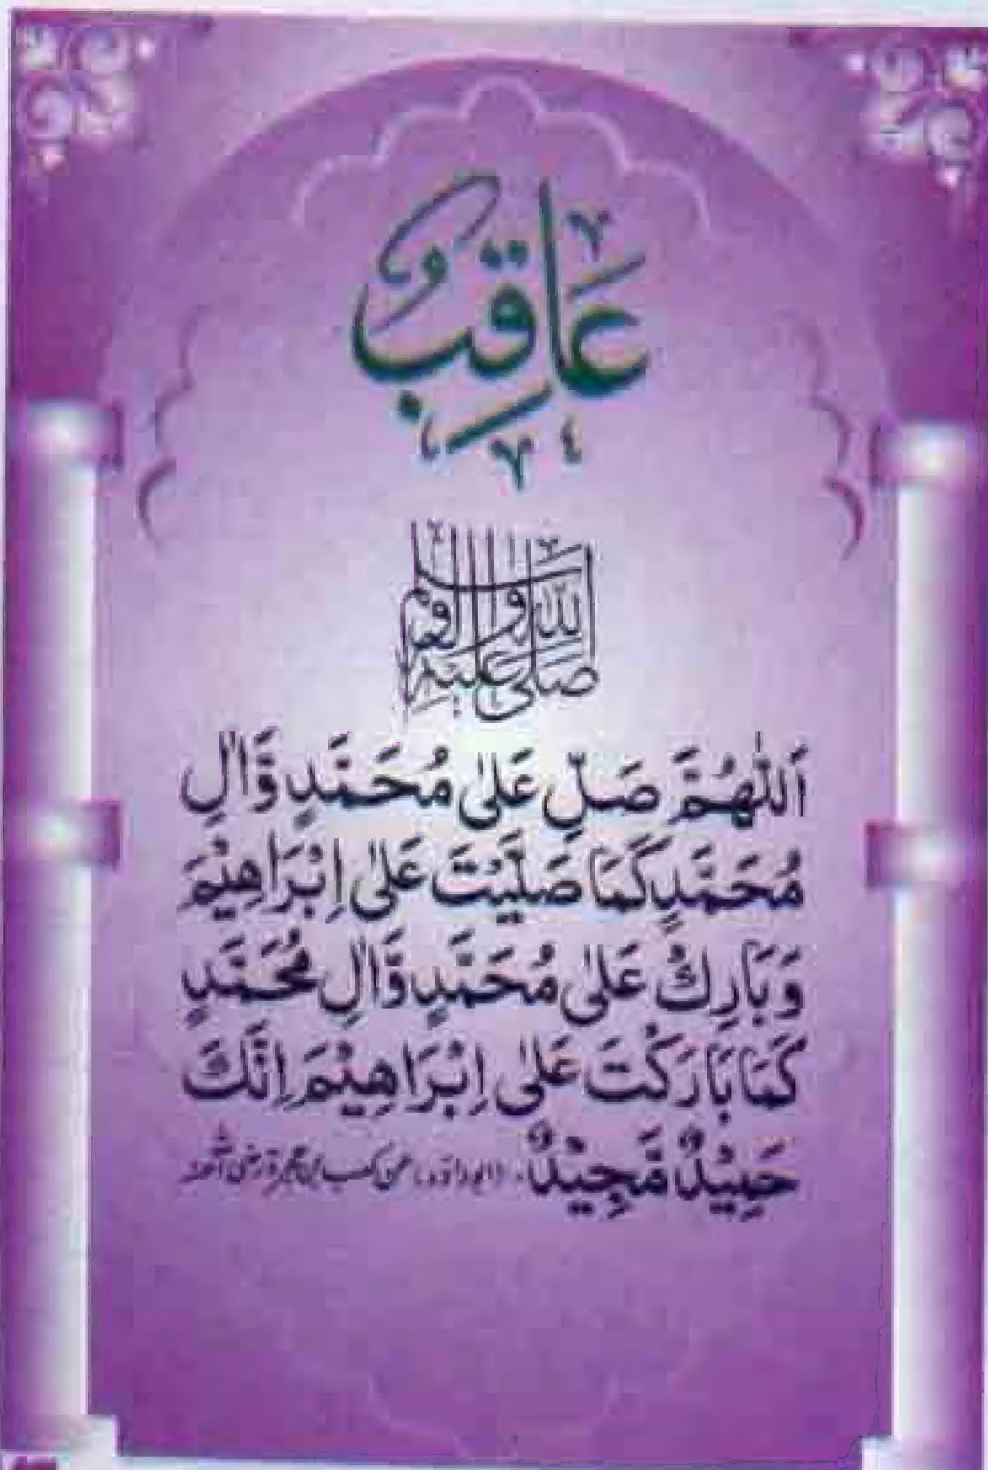 عَاقِبٌ
صلی اللہ علیہ والہ وسلم
اَللّٰهُمَّ صَلِّ عَلٰى مُحَمَّدٍ وَّاٰلِ
مُحَمَّدٍ كَمَا صَلَّيْتَ عَلٰى اِبْرَاهِيْمَ
وَبَارِكْ عَلٰى مُحَمَّدٍ وَّاٰلِ مُحَمَّدٍ
كَمَا بَارَكْتَ عَلٰى اِبْرَاهِيْمَ اِنَّكَ
حَمِيْدٌ مَّجِيْدٌ۔ (ابوداؤد، عن کعب ابن عجرۃ رضی اللہ عنہ